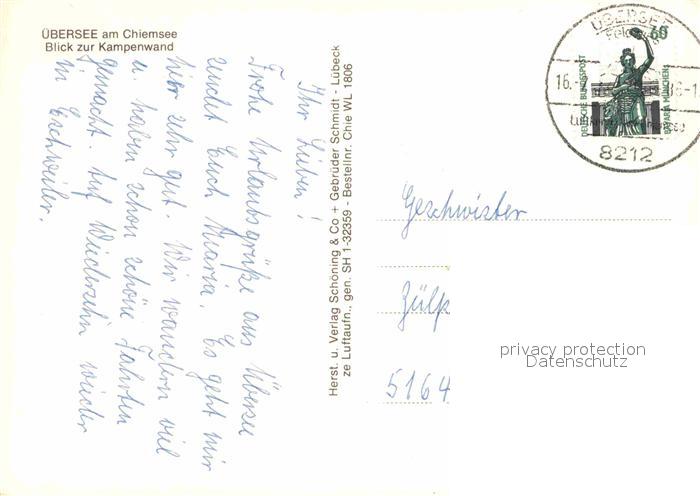 ÜBERSEE am Chiemsee
Blick zur Kampenwand
Ihr Lieben!
Frohe Urlaubsgrüße aus Übersee
sendet Euch Maria. Es geht mir
hier sehr gut. Wir wandern viel
u. haben schon schöne Fahrten
gemacht. Auf Wiedersehn wieder
in Eschweiler.
Herst. u. Verlag Schöning & Co + Gebrüder Schmidt - Lübeck
ze Luftaufn., gen. SH 1-32359 - Bestellnr. Chie WL 1806
ÜBERSEE
60
DEUTSCHE BUNDESPOST
BAVARIA MÜNCHEN
16.
8212
Geschwister
Zülp
5164
privacy protection
Datenschutz